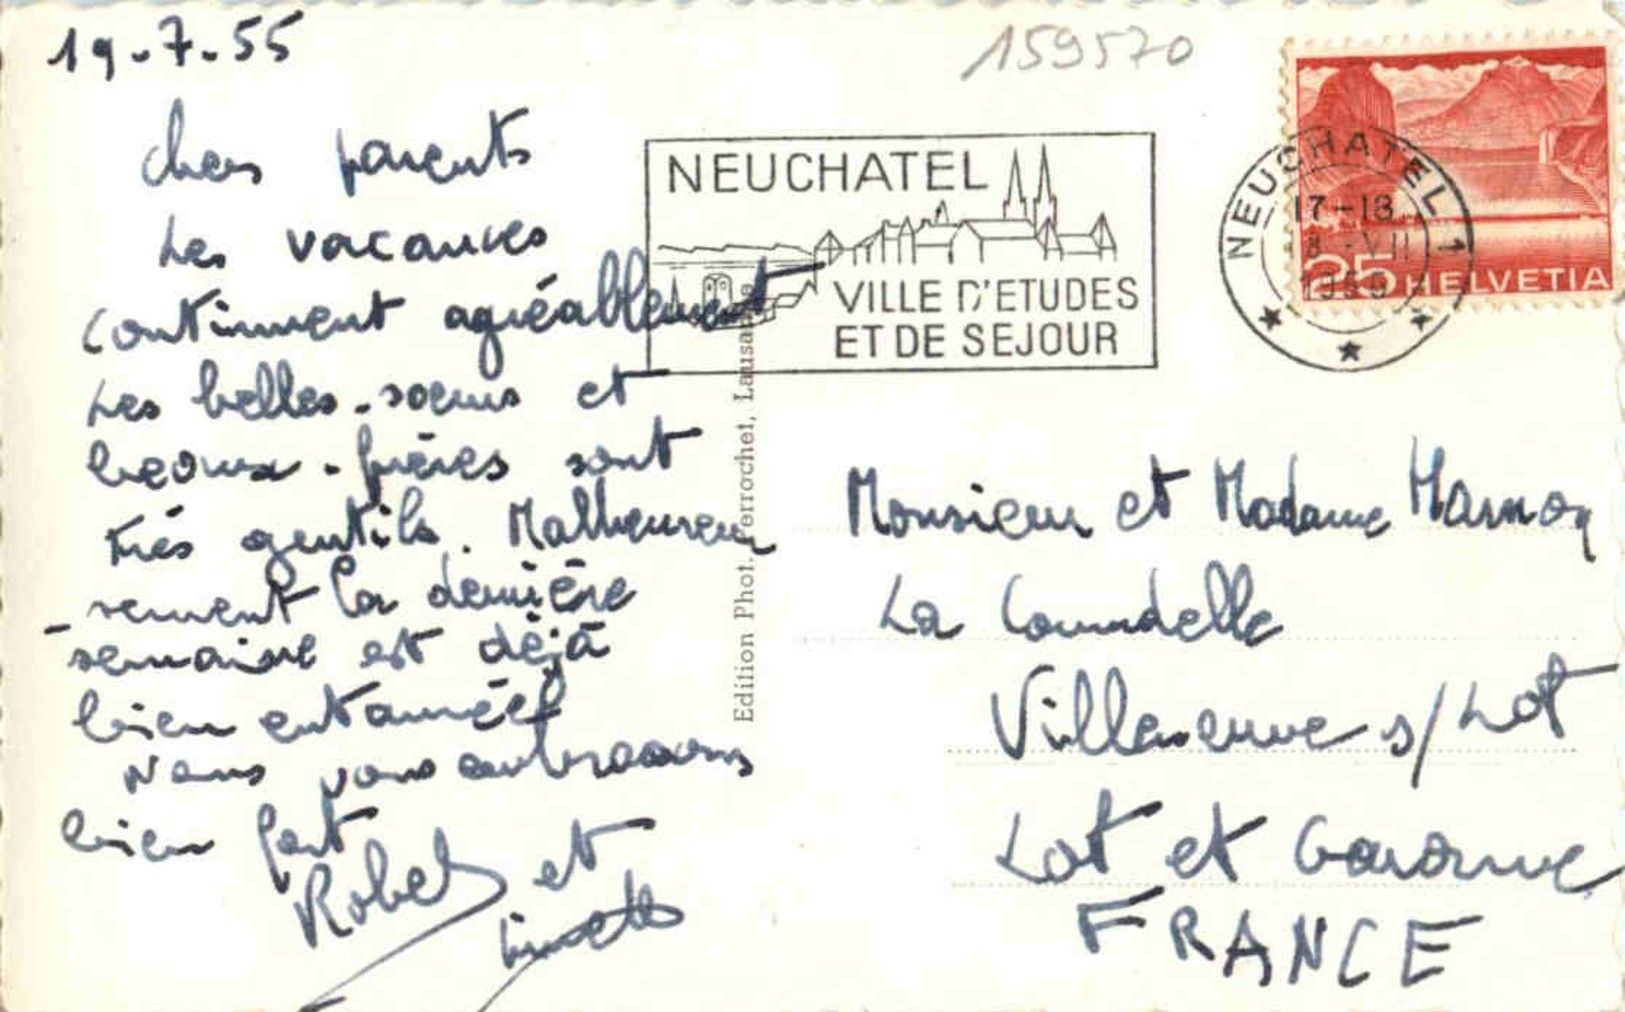 19-7-55
159570
chers parents
Les vacances
continuent agréablement
Les belles-soeurs et
beaux-frères sont
très gentils. Malheureu
-sement la dernière
semaine est déjà
bien entamée
Nous vous embrassons
bien fort
Robert et
NEUCHATEL
VILLE D'ETUDES
ET DE SEJOUR
NEUCHATEL 1
17-18
VII
25 HELVETIA
Edition Phot. Perrochet, Lausanne
Monsieur et Madame
La
Villeneuve s/Lot
Lot et Garonne
FRANCE